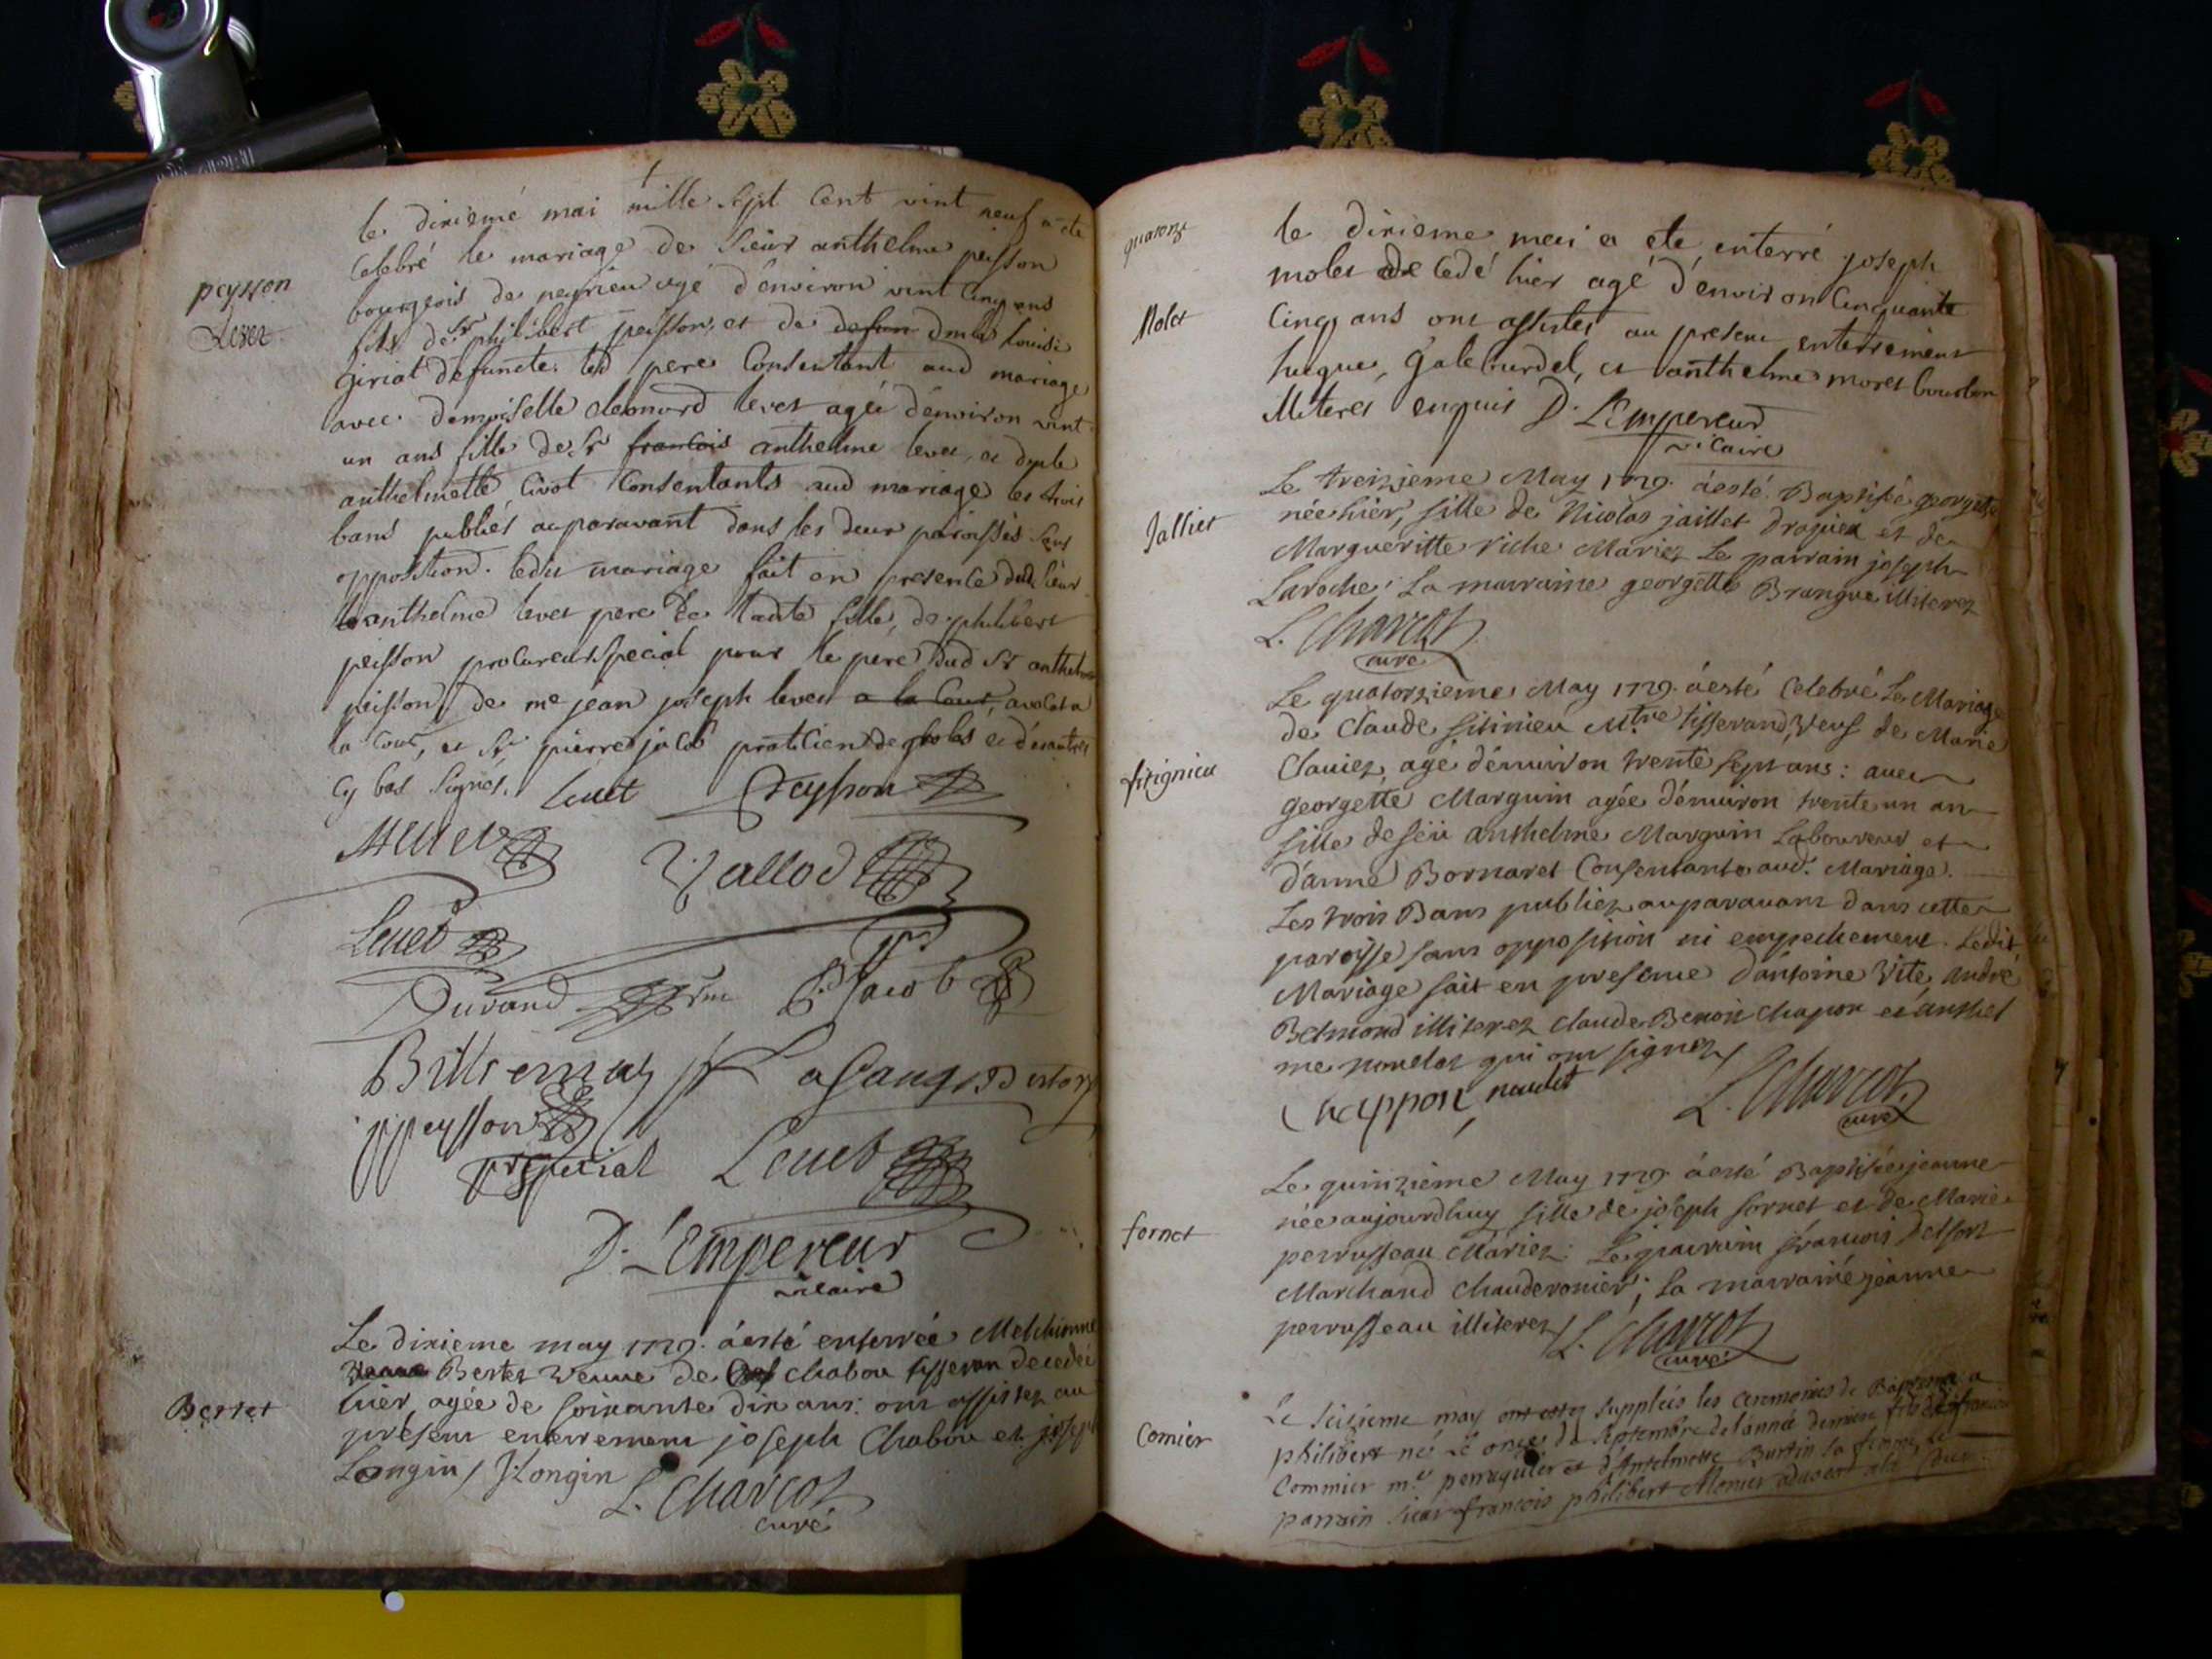 le dixieme mai mille sept cent vint neuf a ete
celebré le mariage de sieur anthelme peisson
bourgeois de peyrieu agé d'environ vint cinq ans
peysson
Levet
fils de sr philibert peisson, et de defun dmlle louise
giriat defuncte. led pere consentant aud mariage
avec demoiselle leonard levet agée d'environ vint
un ans fille de sr francois anthelme levet, et dmle
anthelmette civot consentants aud mariage les trois
bans publiés auparavant dans les deux paroisses sans
opposition. ledit mariage fait en presence dud sieur
anthelme levet pere de ladite fille, de philibert
peisson procureur special pour le pere dud sr anthelme
peisson, de me jean joseph levet a la cour, avocat a
la cour, et sr pierre jacob praticien de et d'autres
cy bas signés. Levet Peysson
Vallod
Levet
Durand P Jacob
Brillemaz Lasauge Bertory
ppeysson
pr special Levet
D. L'Empereur
vicaire
Le dixieme may 1729. a esté enterrée Melchionne
Bertet veuve de chabou tisseran decedée
Bertet
hier, agée de soixante dix ans: ont assistez au
présent enterrement joseph Chabou et joseph
Longin / J. Longin
L. Charcot
curé
quatorze
le dixieme mai a ete enterré joseph
molet decedé hier agé d'environ cinquante
Molet
cinq ans ont assistés au present enterrement
hugue, galeburdel, et anthelme moret bourbon
illiteres enquis D. L'Empereur
vicaire
Le treizieme May 1729. a esté Baptisée georgette
Jallier
née hier, fille de Nicolas jaillet drapier et de
Margueritte riche Mariez Le parrain joseph
Laroche; La marraine georgette Brangue illiterez
L. Charcot
curé
Le quatorzieme May 1729. a esté Celebré Le Mariage
de Claude sitinieu Mtre tisserand, veuf de Marie
fitignieu
Clauiez, agé d'environ trente sept ans: auec
georgette Marguin agée d'environ trente un an
fille de feu anthelme Marguin Laboureur et
d'anne Bornaret Consentante aud. Mariage.
Les trois Bans publiez auparauant dans cette
paroisse sans opposition ni empechement. Ledit
Mariage fait en presence d'antoine Vite, andré
Belmond illiterez Claude Benoit Chapon et anthel
me noudet qui ont signez /
Chappon, naudet L. Charcot
curé
Le quinzième May 1729. a esté Baptisée jeanne
née aujourdhuy fille de joseph fornet et de Marie
fornet
perrusseau Mariez. Le parrain françois Delfort
Marchand chauderonier; La marraine jeanne
perrusseau illiterez / L. Charcot
curé
Le seizieme may ont estez supplées les ceremonies de Bapteme a
philibert né le onze de septembre de l'année derniere fils de francois
Comier
Commier me perruquier et d'Antelmette Burtin sa femme, le
parrain sieur francois philibert Monier advocat a la Cour.